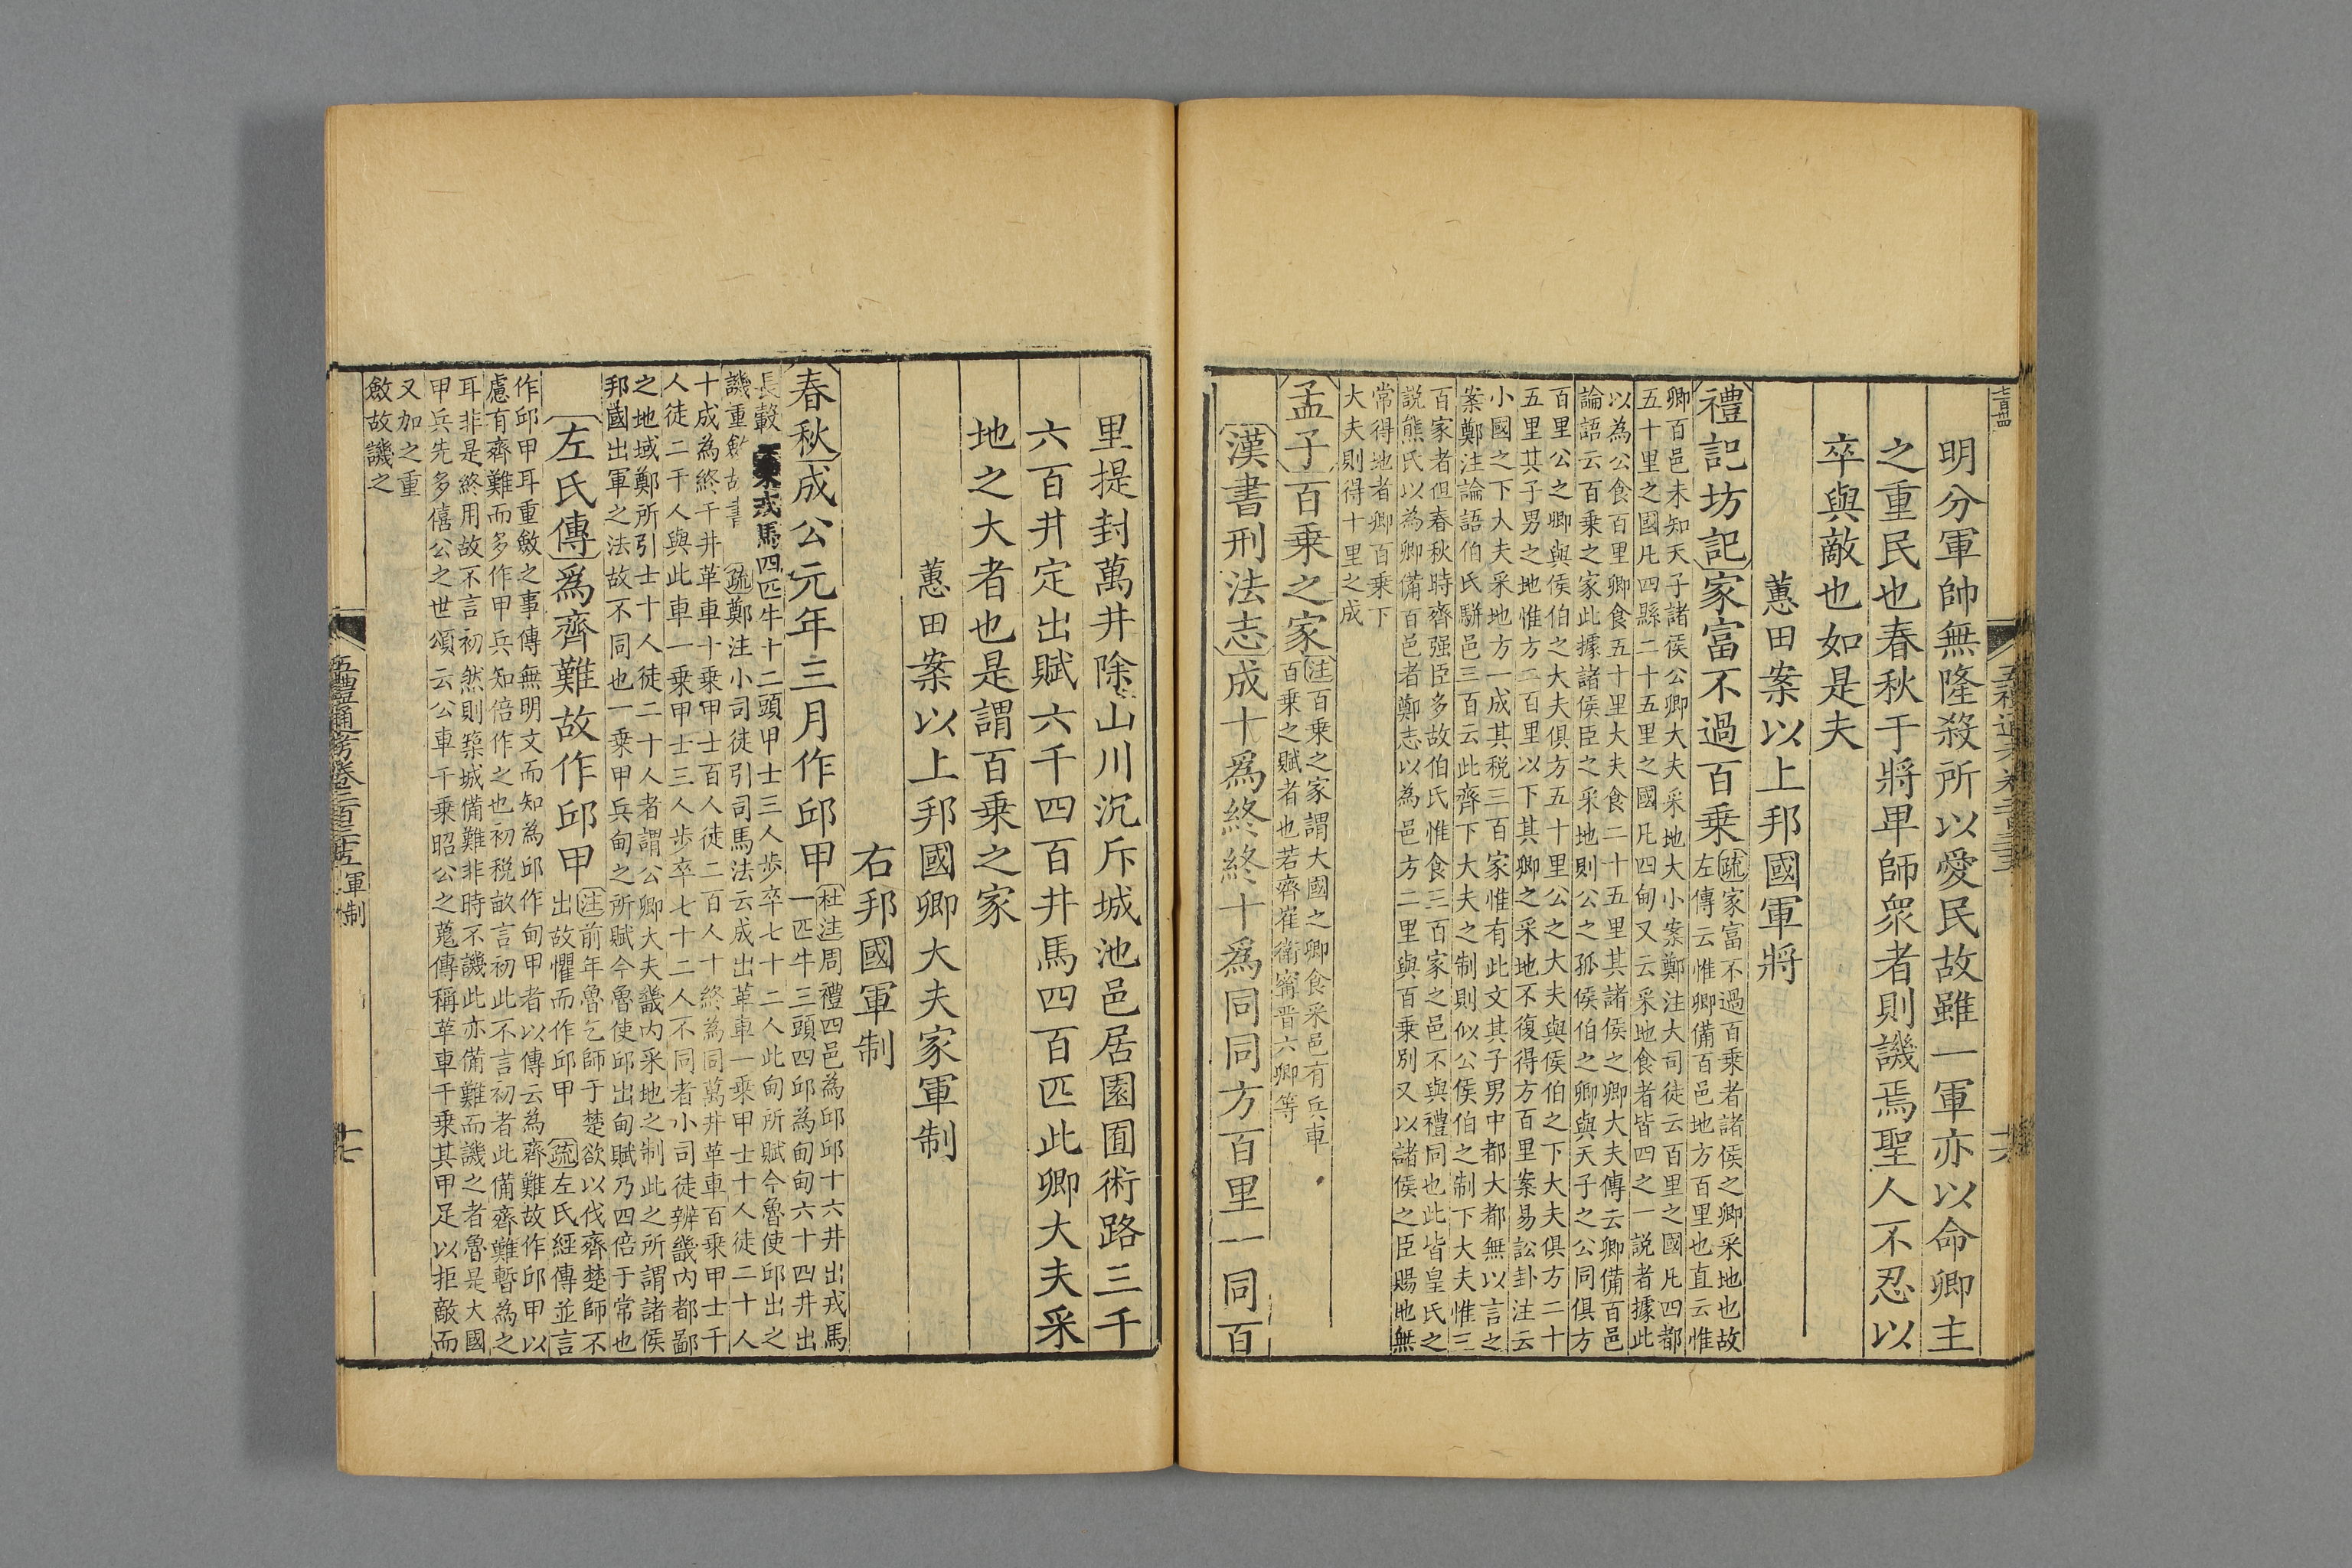 明分軍帥無隆殺所以愛民故雖一軍亦以命卿主
之重民也春秋于將卑師衆者則譏焉聖人不忍以
卒與敵也如是夫
蕙田案以上邦國軍將
禮記坊記家富不過百乗
疏家富不過百乗者諸侯之卿采地也故
左傳云惟卿備百邑地方百里也直云惟
卿百邑未知天子諸侯公卿大夫采地大小案鄭注大司徒云百里之國凡四都
五十里之國凡四縣二十五里之國凡四甸又云采地食者皆四之一説者據此
以為公食百里卿食五十里大夫食二十五里其諸侯之卿大夫傳云卿備百邑
論語云百乗之家此據諸侯臣之采地則公之孤侯伯之卿與天子之公同俱方
百里公之卿與侯伯之大夫俱方五十里公之大夫與侯伯之下大夫俱方二十
五里其子男之地惟方二百里以下其卿之采地不復得方百里案易訟卦注云
小國之下大夫采地方一成其税三百家惟有此文其子男中都大都無以言之
案鄭注論語伯氏駢邑三百云此齊下大夫之制則似公侯伯之制下大夫惟三
百家者但春秋時齊强臣多故伯氏惟食三百家之邑不與禮同也此皆皇氏之
説熊氏以為卿備百邑者鄭志以為邑方二里與百乗別又以諸侯之臣賜地無
常得地者卿百乗下
大夫則得十里之成
孟子百乗之家
注百乗之家謂大國之卿食采邑有兵車
百乗之賦者也若齊崔衛甯晋六卿等
漢書刑法志成十爲終終十爲同同方百里一同百
里提封萬井除山川沉斥城池邑居園囿術路三千
六百井定出賦六千四百井馬四百匹此卿大夫采
地之大者也是謂百乗之家
蕙田案以上邦國卿大夫家軍制
右邦國軍制
春秋成公元年三月作邱甲
杜注周禮四邑為邱邱十六井出戎馬
一匹牛三頭四邱為甸甸六十四井出
長轂一乗戎馬四匹牛十二頭甲士三人歩卒七十二人此甸所賦今魯使邱出之
譏重斂故書
疏鄭注小司徒引司馬法云成出革車一乗甲士十人徒二十人
十成為終千井革車十乗甲士百人徒二百人十終為同萬井革車百乗甲士千
人徒二千人與此車一乗甲士三人歩卒七十二人不同者小司徒辨畿内都鄙
之地域鄭所引士十人徒二十人者謂公卿大夫畿内采地之制此之所謂諸侯
邦國出軍之法故不同也一乗甲兵甸之所賦今魯使邱出甸賦乃四倍于常也
左氏傳爲齊難故作邱甲
注前年魯乞師于楚欲以伐齊楚師不
出故懼而作邱甲
疏左氏經傳並言
作邱甲耳重斂之事傳無明文而知為邱作甸甲者以傳云為齊難故作邱甲以
慮有齊難而多作甲兵知倍作之也初税畝言初此不言初者此備齊難暫為之
耳非是終用故不言初然則築城備難非時不譏此亦備難而譏之者魯是大國
甲兵先多僖公之世頌云公車千乗昭公之蒐傳稱革車千乗其甲足以拒敵而
又加之重
斂故譏之
五禮通考卷二百三十五 軍制
十七